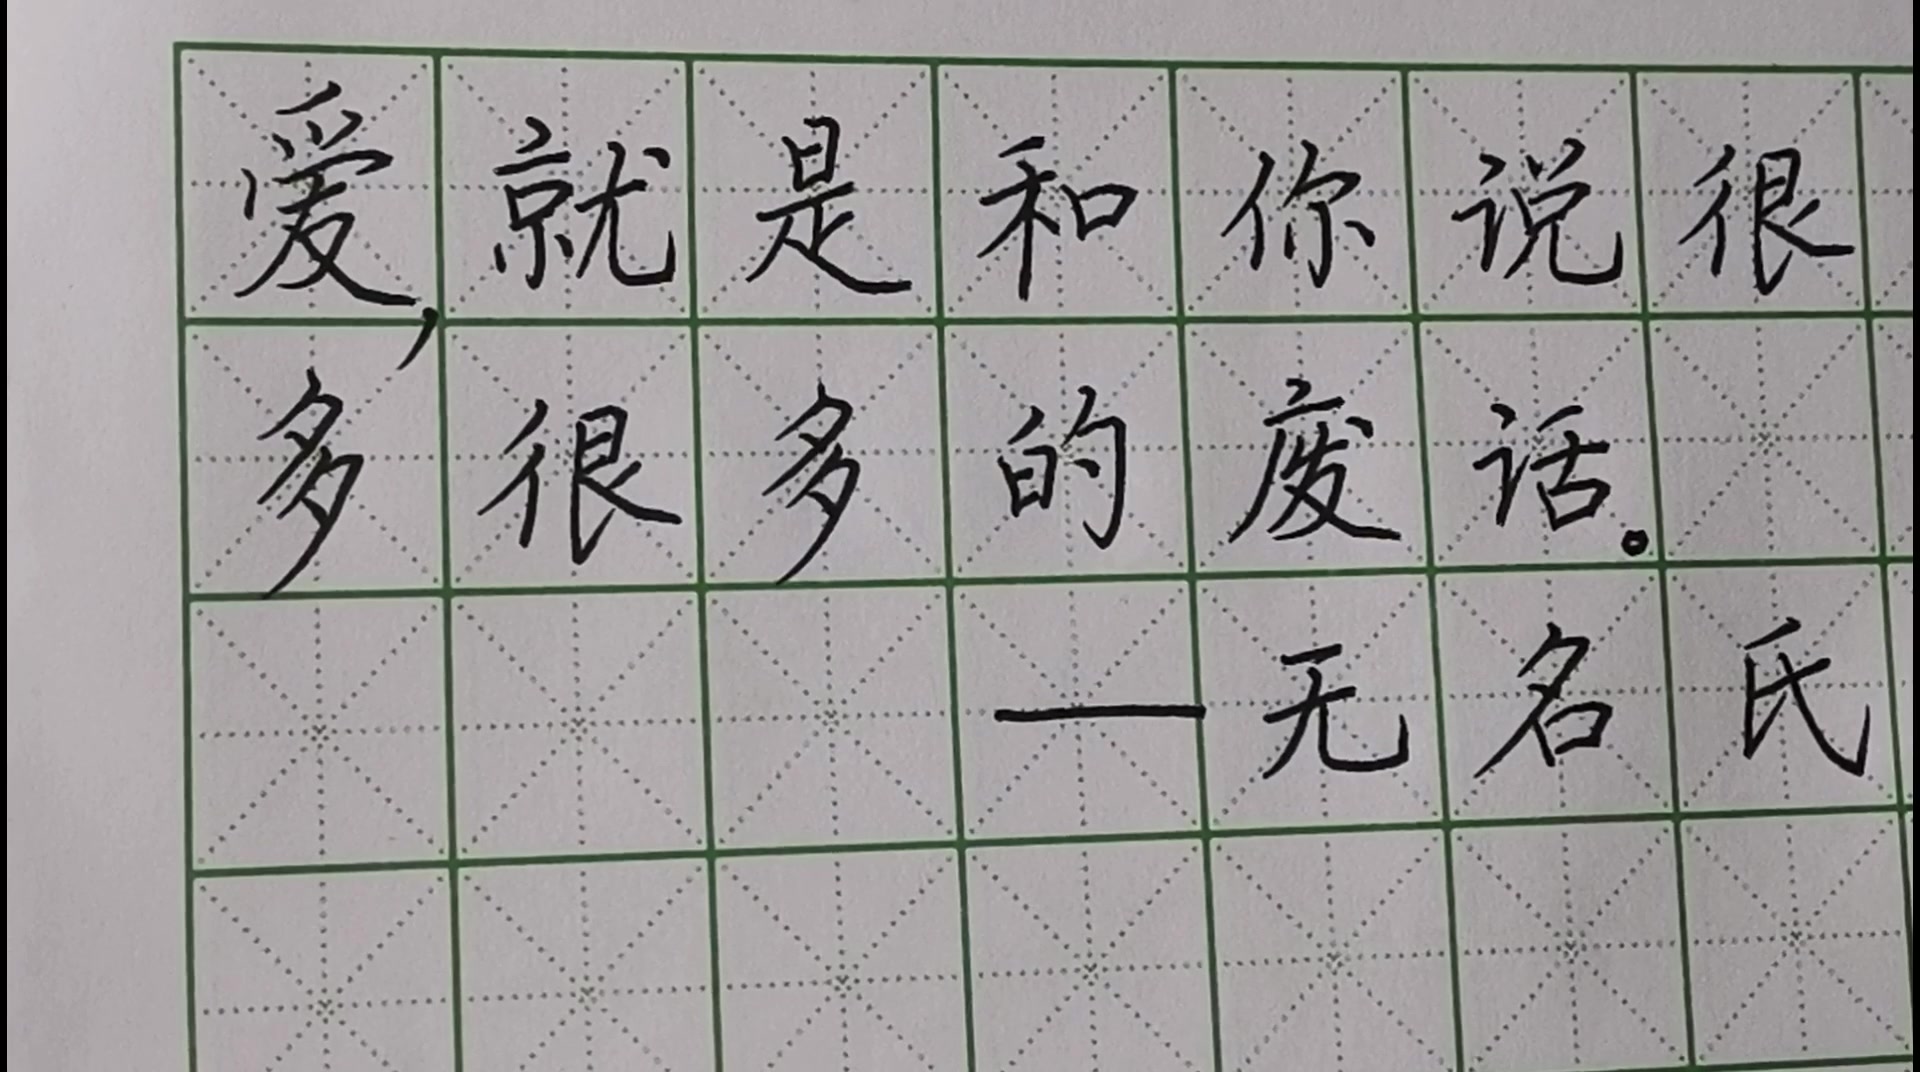 爱,就是和你说很
多很多的废话。
—无名氏